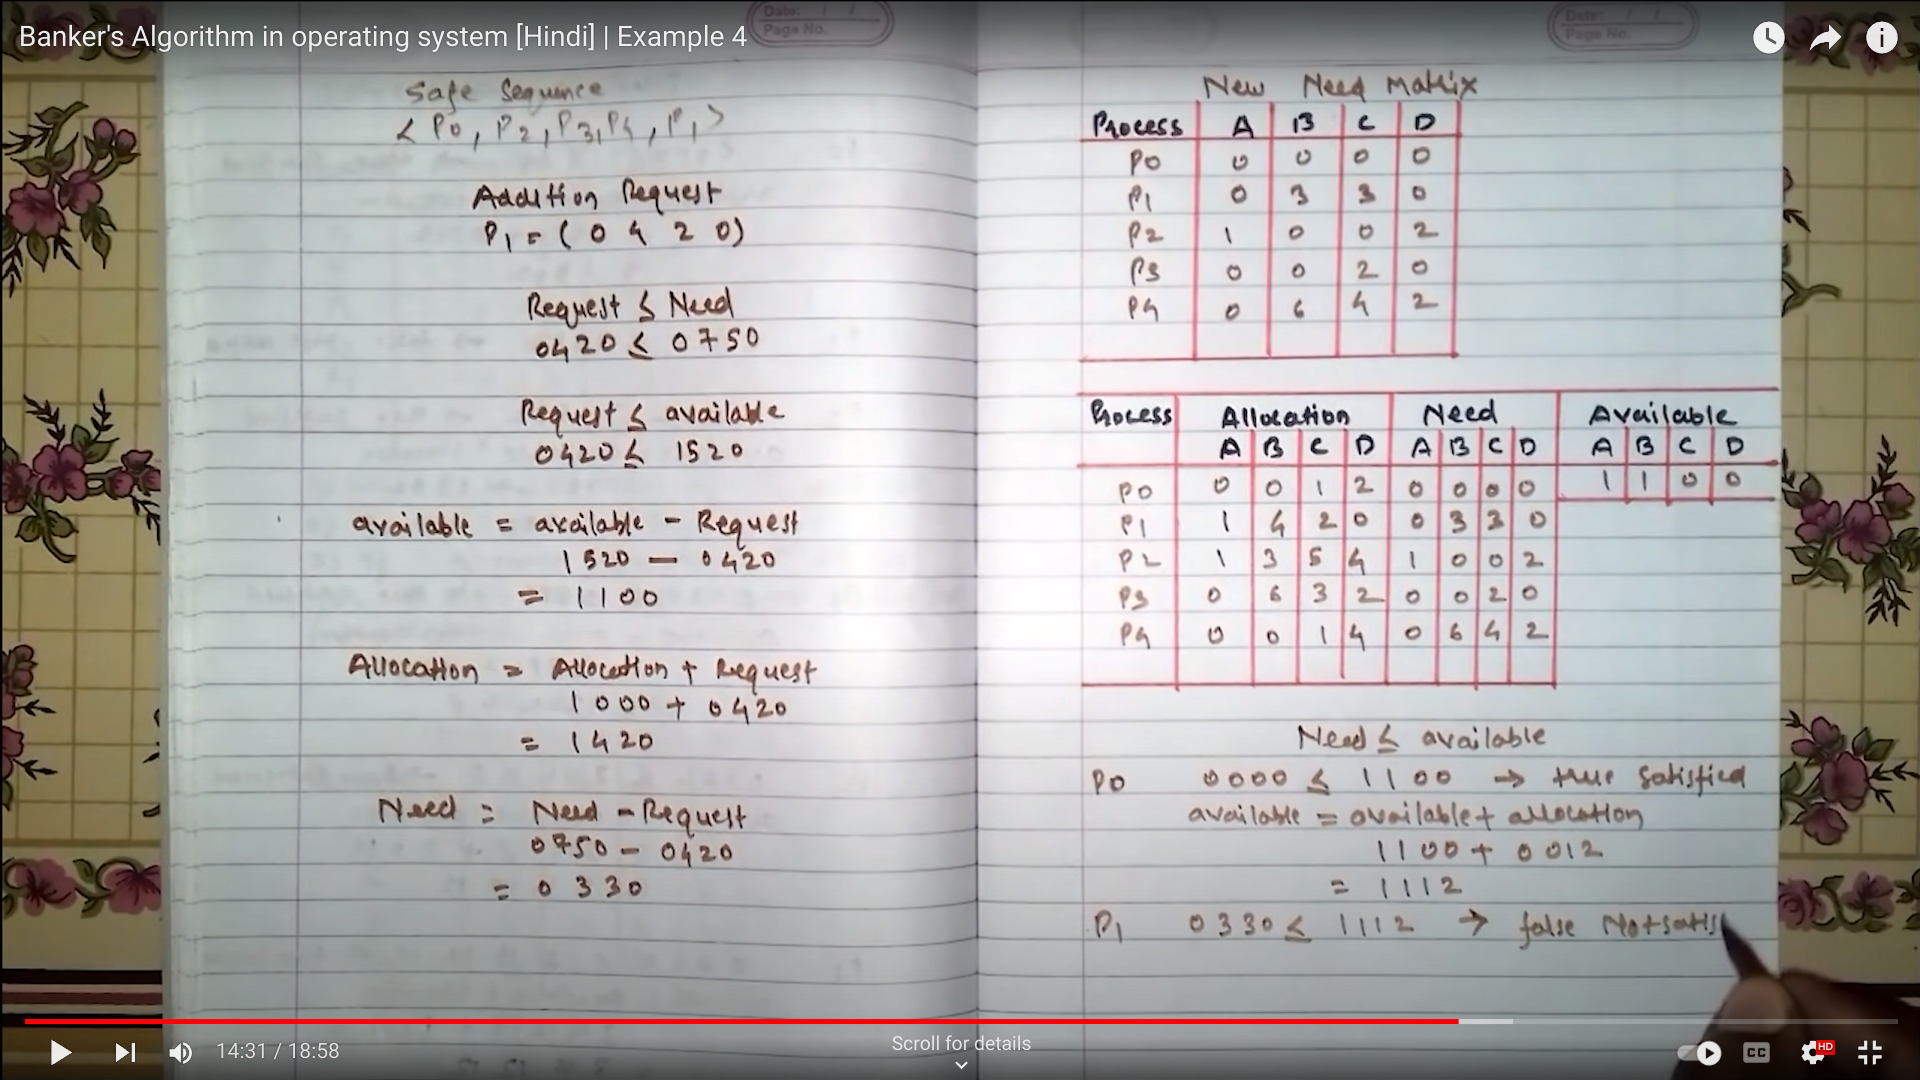 Banker's Algorithm in operating system [Hindi] | Example 4
Date: / /
Page No.
Date: / /
Page No.
Safe Sequence
< P0, P2, P3, P4, P1 >
Addition Request
P1 = ( 0 4 2 0 )
Request ≤ Need
0420 ≤ 0750
Request ≤ available
0420 ≤ 1520
available = available - Request
1520 - 0420
= 1100
Allocation = Allocation + Request
1000 + 0420
= 1420
Need = Need - Request
0750 - 0420
= 0330
New Need Matrix
Process A B C D
P0 0 0 0 0
P1 0 3 3 0
P2 1 0 0 2
P3 0 0 2 0
P4 0 6 4 2
Process Allocation Need Available
A B C D A B C D A B C D
P0 0 0 1 2 0 0 0 0 1 1 0 0
P1 1 4 2 0 0 3 3 0
P2 1 3 5 4 1 0 0 2
P3 0 6 3 2 0 0 2 0
P4 0 0 1 4 0 6 4 2
Need ≤ available
P0 0000 ≤ 1100 → true satisfied
available = available + allocation
1100 + 0012
= 1112
P1 0330 ≤ 1112 → false Not satis
14:31 / 18:58
Scroll for details
CC
HD